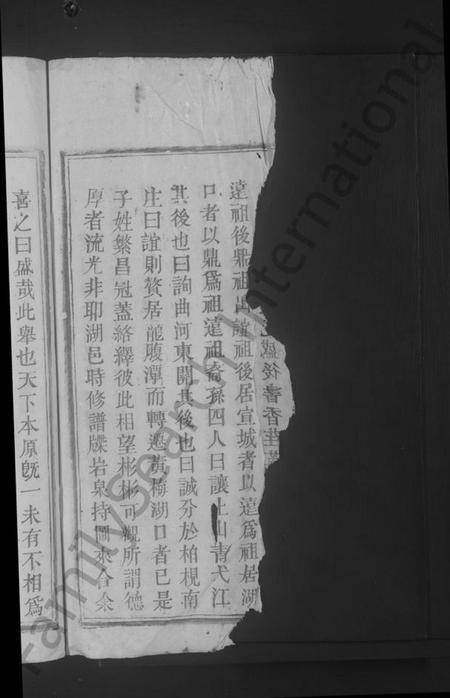 盛後書香
遠祖後鼎祖出諠祖後居宣城者以遠爲祖居湖
口者以鼎爲祖遠祖裔孫四人曰讓上山靑弋江
其後也曰詢曲河東閘其後也曰誠分於柏梘南
庄曰諠則贅居龍腹潭而轉遷黃梅湖口者巳是
子姓繁昌冠蓋絡繹彼此相望彬彬可觀所謂德
厚者流光非耶湖邑時修譜牒岩泉持圖來合余
喜之曰盛哉此舉也天下本原旣一未有不相爲
FamilySearch International